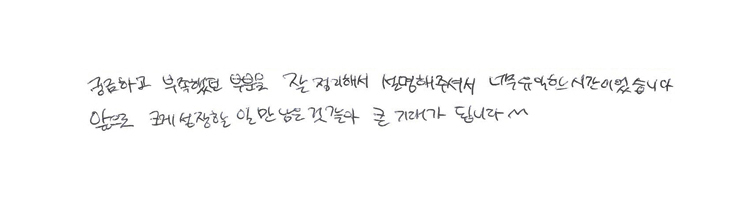 궁금하고 부족했던 부분을 잘 정리해서 설명해주셔서 너무유익한 시간이었습니다
앞으로 크게 성장할 일만 남은것같아 큰 기대가 됩니다^^